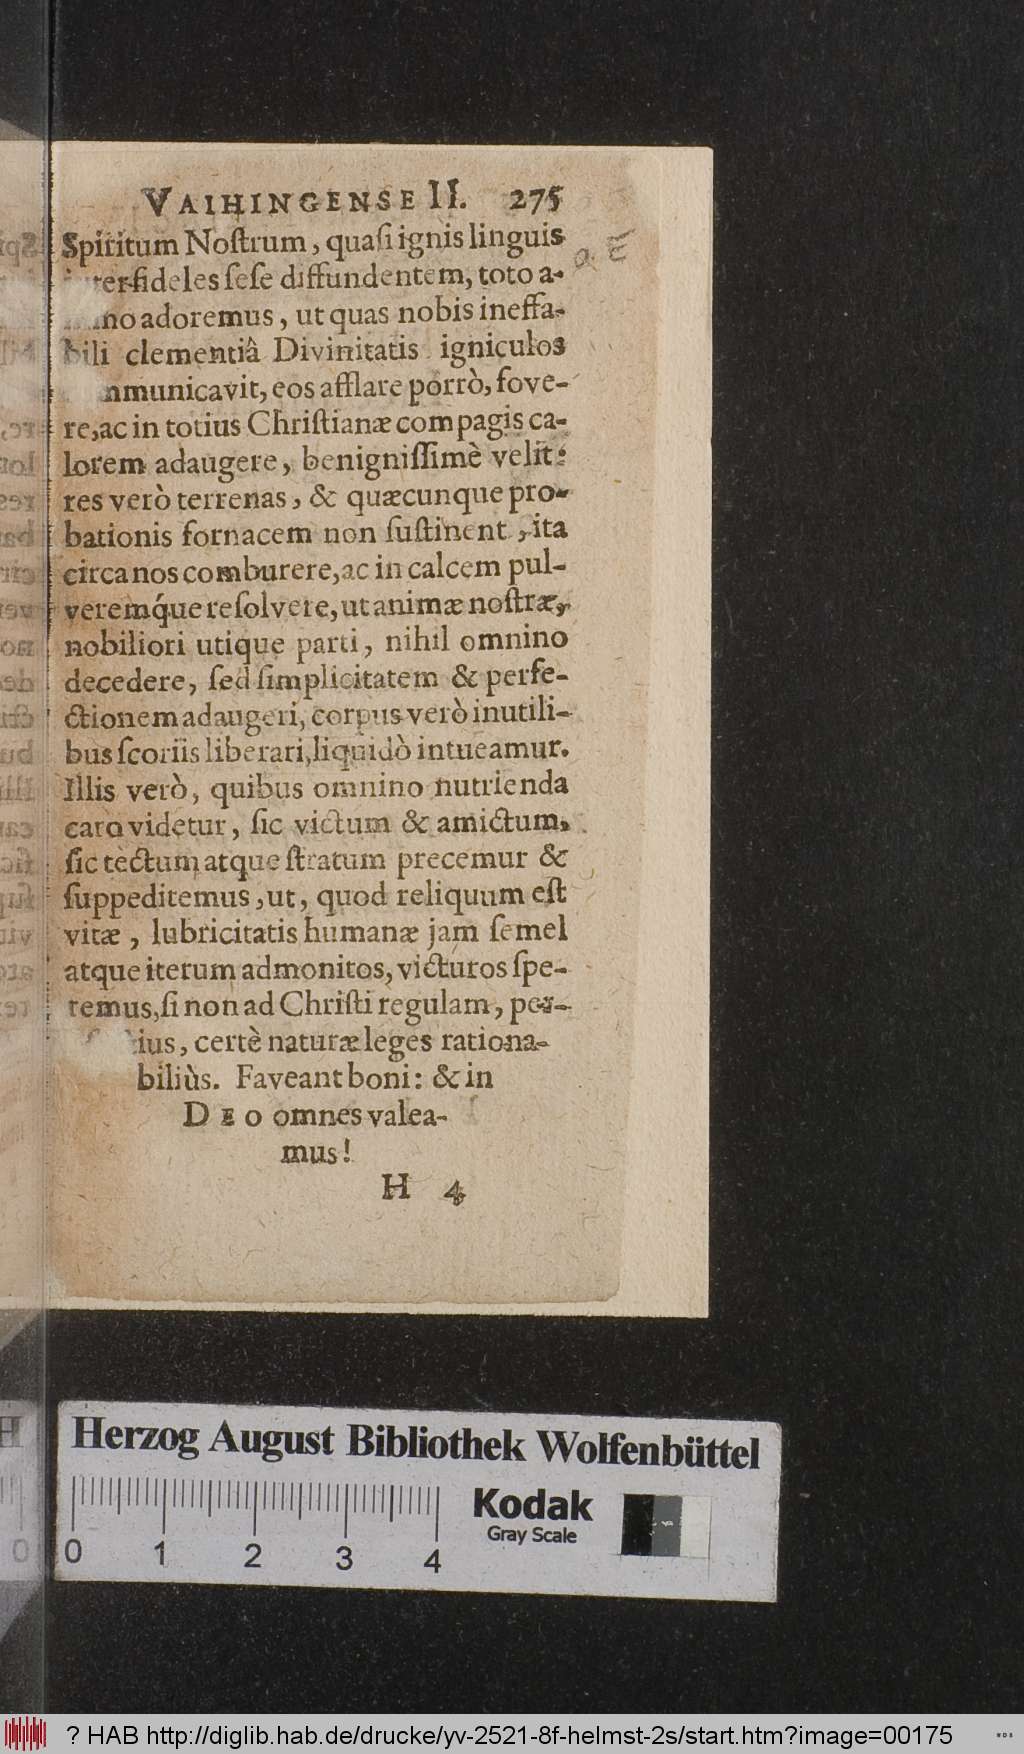 VAIHINGENSE II. 275
Spiritum Noſtrum, quaſi ignis linguis
fideles ſeſe diffundentem, toto a-
adoremus, ut quas nobis ineffa-
bili clementiâ Divinitatis igniculos
eos afflare porrò, fove-
re, ac in totius Chriſtianæ compagis ca-
lorem adaugere, benigniſſimè velit:
res verò terrenas, & quæcunque pro-
bationis fornacem non ſuſtinent, ita
circa nos comburere, ac in calcem pul-
veremq́ue reſolvere, ut animæ noſtræ,
nobiliori utique parti, nihil omnino
decedere, ſed ſimplicitatem & perfe-
ctionem adaugeri, corpus verò inutili-
bus ſcoriis liberari, liquidò intueamur.
Illis verò, quibus omnino nutrienda
caro videtur, ſic victum & amictum,
ſic tectum atque ſtratum precemur &
ſuppeditemus, ut, quod reliquum eſt
vitæ, lubricitatis humanæ jam ſemel
atque iterum admonitos, victuros ſpe-
remus, ſi non ad Chriſti regulam, per-
certè naturæ leges rationa-
biliùs. Faveant boni: & in
DEO omnes valea-
mus!
H 4
a. E
Herzog August Bibliothek Wolfenbüttel
Kodak
Gray Scale
0 1 2 3 4
? HAB http://diglib.hab.de/drucke/yv-2521-8f-helmst-2s/start.htm?image=00175